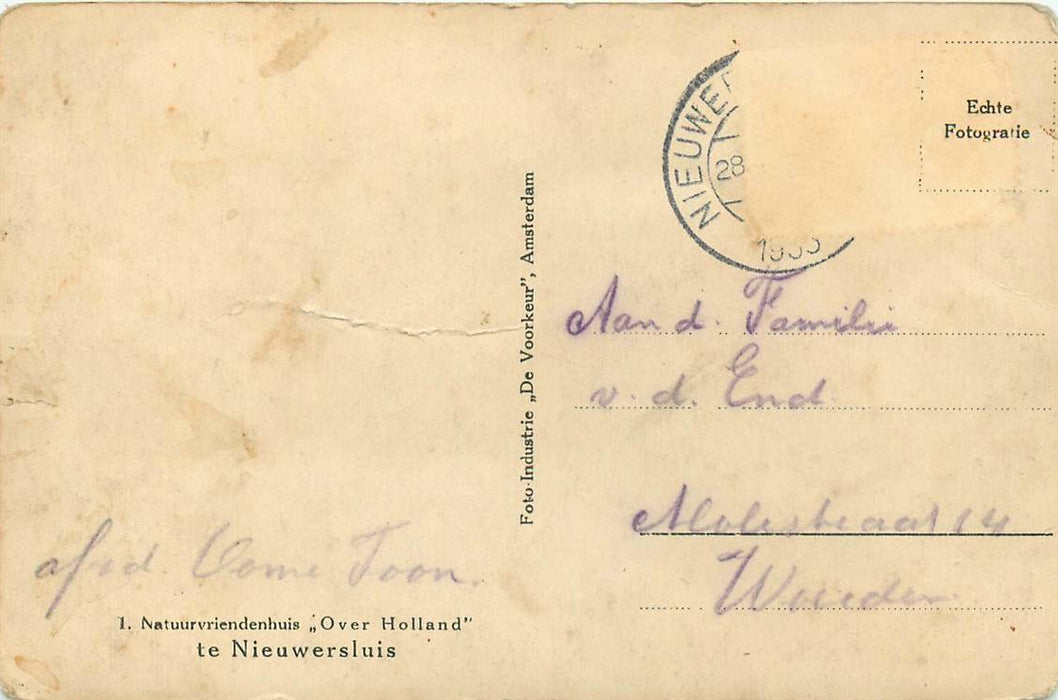 NIEUWER
28
Echte
Fotografie
Foto-Industrie „De Voorkeur”, Amsterdam
Aan d. Familie
v. d. End
14
Woerden
afzd. Oome Toon.
1. Natuurvriendenhuis „Over Holland”
te Nieuwersluis